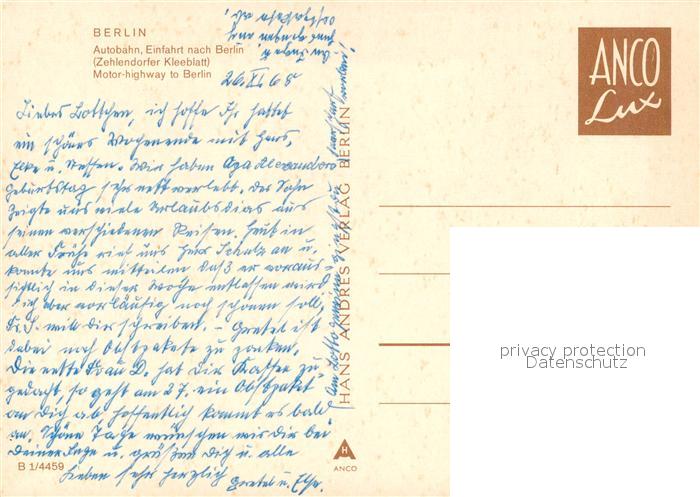 BERLIN
Autobahn, Einfahrt nach Berlin
(Zehlendorfer Kleeblatt)
Motor-highway to Berlin
ANCO
Lux
Liebes Lottchen, ich hoffe Ihr hattet
ein schönes Wochenende mit Hans,
Elke u. Steffen. Wir haben Opa Alexanders
Geburtstag sehr nett verlebt. Der Sohn
zeigte uns viele Urlaubsdias aus
seinen verschiedenen Reisen. Heut in
aller Frühe rief uns Herr Schulz an u.
konnte uns mitteilen daß er voraus-
sichtlich in dieser Woche entlassen wird
sich aber vorläufig noch schonen soll,
will dir schreiben. – Gretel ist
dabei noch Obstpakete zu packen.
Die nette Frau D. hat dir Kaffee zu-
gedacht, so geht am 27. ein Obstpaket
an Dich ab, hoffentlich kommt es bald
an. Schöne Tage wünschen wir dir bei
Deiner u. grüßen Dich u. alle
Lieben sehr herzlich Gretel u.
HANS ANDRES VERLAG BERLIN
B 1/4459
H
ANCO
privacy protection
Datenschutz